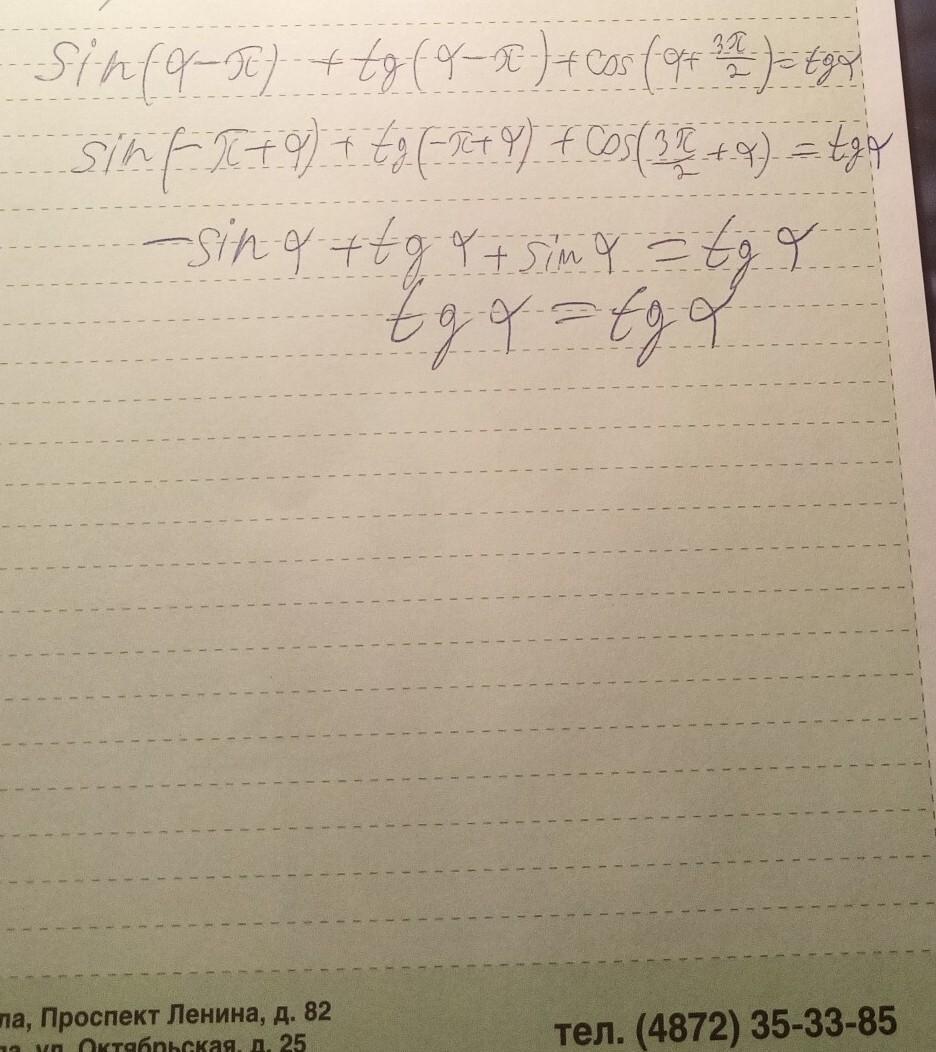 sin(α-π) + tg(α-π)+cos(α+3π/2)=tgα
sin(-π+α)+tg(-π+α)+cos(3π/2+α)=tgα
-sinα+tgα+sinα=tgα
tgα=tgα
ла, Проспект Ленина, д. 82
ла, ул. Октябрьская, д. 25
тел. (4872) 35-33-85